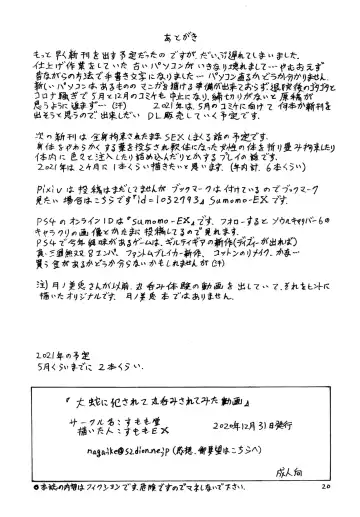 あとがき
もっと早く新刊を出す予定だったのですが、だいぶ遅れてしまいました。
仕上げ作業をしていた古いパソコンがいきなり壊れまして…やむおえず
昔ながらの方法で手書き文字になりました… パソコン直るかどうか分かりません。
新しいパソコンは、あるもののマンガを描ける準備が出来ておらず
コロナ騒ぎで5月と12月のコミケも中止になり、締切りがないと原稿が
思うように進まず…(汗) 2021年は、5月のコミケに向けて何本か新刊を
出そうと思うので出来しだいDL販売していく予定です。
次の新刊は全身拘束されたままSEXしまくる話の予定です。
身体をやわらかくする薬を投与され軟体になった女性の体を折り畳み拘束したり
体内に色々と注入したり詰め込んだりとかするプレイの話です。
2021年は2ヵ月に1本くらい描きたいと思います。(年内計、6本くらい)
Pixivは投稿はまだしてませんがブックマークは付けているのでブックマーク
見たい場合はこちらです『id=1032793』Sumomo-EXです。
PS4のオンラインIDは『sumomo-EX』です、フォローするとソウルキャリバー6の
キャラクリの画像とかたまに投稿してるので見れます。
PS4で今年興味があるゲームは、ギルティギアの新作(ディズィーが出れば)
真・三國無双8エンパ、ファントムブレイカー新作、コットンのリメイク、かな…
買う金があるかどうか分からないかもしれませんが(汗)
注) 月ノ美兎さんが以前、丸呑み体験の動画を出していて、それをヒントに
描いたオリジナルです。月ノ美兎本ではありません。
2021年の予定
5月くらいまでに2本くらい。
『大蛇に犯されて丸呑みされてみた動画』
サークル名:すもも堂
描いた人:すももEX
2020年12月31日発行
nagaike@s2.dion.ne.jp (感想、御要望はこちらへ)
成人向
●本紙の内容はフィクションです、危険ですのでマネしないで下さい。
20